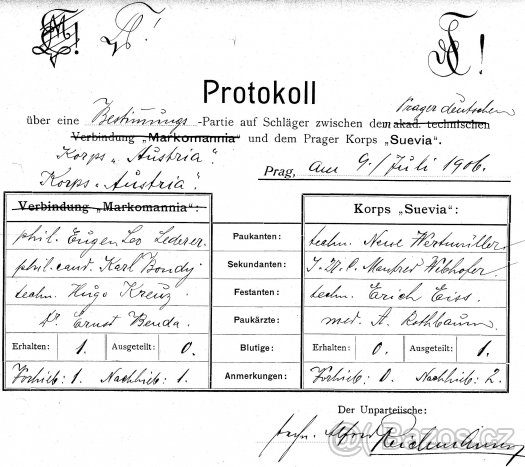 Protokoll
über eine Bestimmungs-Partie auf Schläger zwischen dem akad. technischen Prager deutschen
Verbindung „Markomannia" und dem Prager Korps „Suevia".
Korps „Austria".
Korps „Austria".
Prag, am 9./Juli 1906.
Verbindung „Markomannia": Korps „Suevia":
phil. Eugen Leo Lederer. Paukanten: techn.
phil. cand. Karl Bondy Sekundanten: Manfred
techn. Hugo Kreuz. Festanten: techn. Erich Eiss.
Dr. Ernst Benda. Paukärzte: med. A. Rothbaum
Erhalten: 1. Ausgeteilt: 0. Blutige: Erhalten: 0. Ausgeteilt: 1.
Vorhieb: 1. Nachhieb: 1. Anmerkungen: Vorhieb: 0. Nachhieb: 2.
Der Unparteiische:
techn. Alfred
Bazos.cz